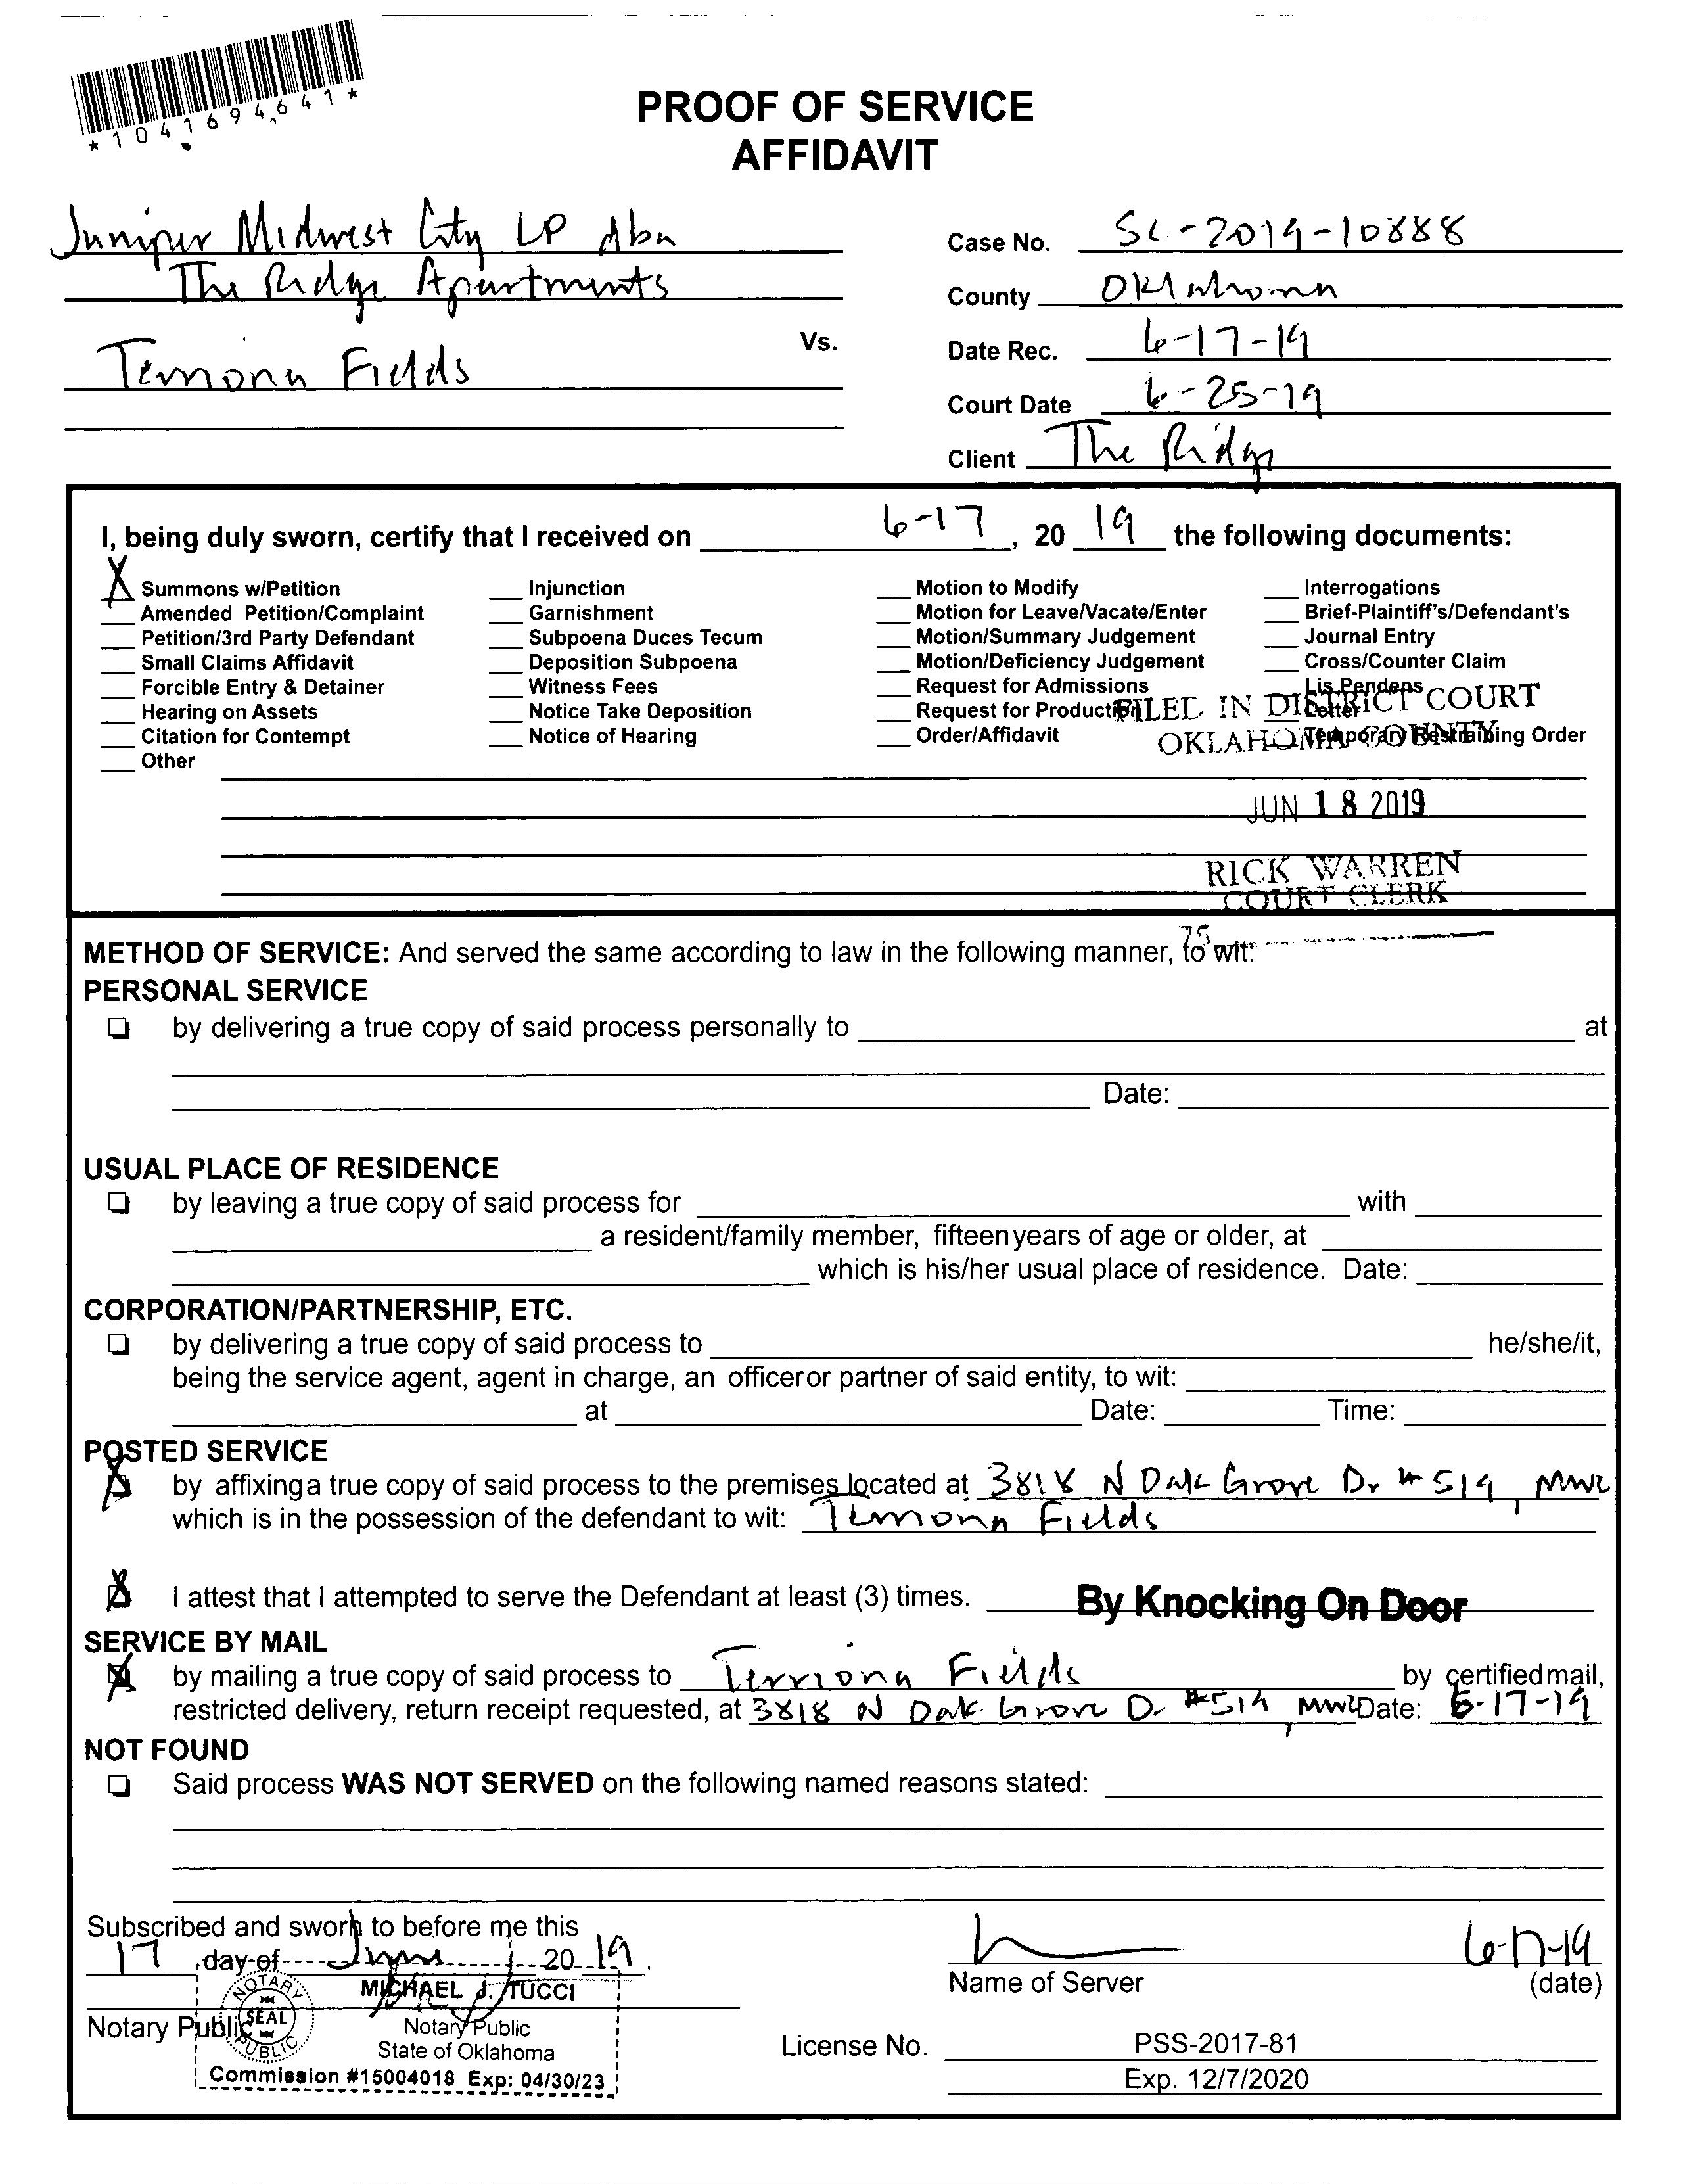 *1041694641*
PROOF OF SERVICE
AFFIDAVIT
Juniper Midwest City LP dba
The Ridge Apartments
Vs.
Terriona Fields
Case No. SC-2019-10888
County Oklahoma
Date Rec. 6-17-19
Court Date 6-25-19
Client The Ridge
I, being duly sworn, certify that I received on 6-17, 20 19 the following documents:
X Summons w/Petition
Amended Petition/Complaint
Petition/3rd Party Defendant
Small Claims Affidavit
Forcible Entry & Detainer
Hearing on Assets
Citation for Contempt
Other
Injunction
Garnishment
Subpoena Duces Tecum
Deposition Subpoena
Witness Fees
Notice Take Deposition
Notice of Hearing
Motion to Modify
Motion for Leave/Vacate/Enter
Motion/Summary Judgement
Motion/Deficiency Judgement
Request for Admissions
Request for Production
Order/Affidavit
Interrogations
Brief-Plaintiff's/Defendant's
Journal Entry
Cross/Counter Claim
Lis Pendens
Letter
Temporary Restraining Order
FILED IN DISTRICT COURT
OKLAHOMA COUNTY
JUN 18 2019
RICK WARREN
COURT CLERK
75
METHOD OF SERVICE: And served the same according to law in the following manner, to wit:
PERSONAL SERVICE
by delivering a true copy of said process personally to at
Date:
USUAL PLACE OF RESIDENCE
by leaving a true copy of said process for with
a resident/family member, fifteen years of age or older, at
which is his/her usual place of residence. Date:
CORPORATION/PARTNERSHIP, ETC.
by delivering a true copy of said process to he/she/it,
being the service agent, agent in charge, an officer or partner of said entity, to wit:
at Date: Time:
POSTED SERVICE
X by affixing a true copy of said process to the premises located at 3818 N Oak Grove Dr #519, MWC
which is in the possession of the defendant to wit: Terriona Fields
X I attest that I attempted to serve the Defendant at least (3) times. By Knocking On Door
SERVICE BY MAIL
X by mailing a true copy of said process to Terriona Fields by certified mail,
restricted delivery, return receipt requested, at 3818 N Oak Grove Dr #519, MWC Date: 6-17-19
NOT FOUND
Said process WAS NOT SERVED on the following named reasons stated:
Subscribed and sworn to before me this
17 day of June, 20 19.
MICHAEL J. TUCCI
Notary Public
NOTARY PUBLIC SEAL
Notary Public
State of Oklahoma
Commission #15004018 Exp: 04/30/23
6-17-19
Name of Server (date)
License No. PSS-2017-81
Exp. 12/7/2020